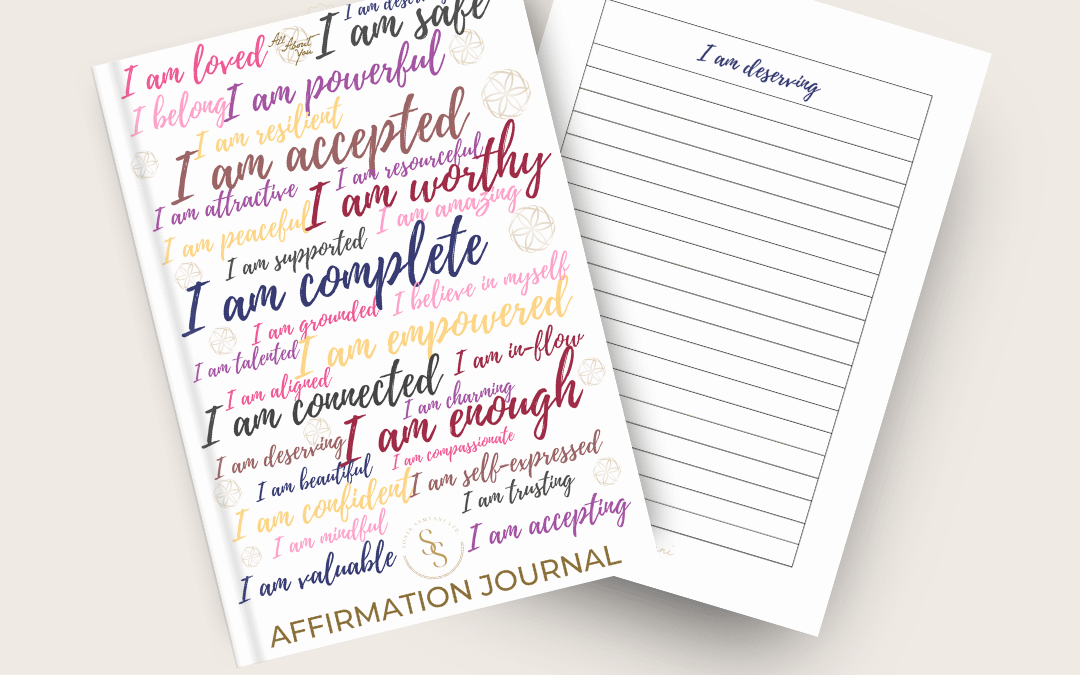 I am deserving
I am safe
All About You
I am loved
I am powerful
I belong
I am resilient
I am accepted
I am resourceful
I am attractive
I am worthy
I am amazing
I am peaceful
I am supported
I am complete
I believe in myself
I am grounded
I am empowered
I am talented
I am in-flow
I am aligned
I am connected
I am charming
I am enough
I am deserving
I am compassionate
I am beautiful
I am self-expressed
I am confident
I am trusting
I am mindful
I am accepting
SS
I am valuable
AFFIRMATION JOURNAL
I am deserving